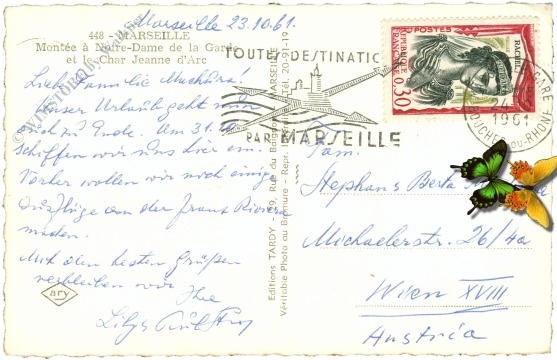 Marseille 23.10.61.
448 - MARSEILLE
Montée à Notre-Dame de la Garde
et le Char Jeanne d'Arc
Liebe Familie
Unser Urlaub geht nun
auch zu Ende. Am 31.10.
schiffen wir uns hier ein.
Vorher wollen wir noch einige
Ausflüge an der franz Riviera
machen.
Mit den besten Grüßen
verbleiben wir
Ihre
ary
Editions TARDY - 19, Rue du Baignoir - MARSEILLE
Véritable Photo au Bromure - Repr. Tél. 20-91-19
TOUTES DESTINATIONS
PAR MARSEILLE
REPUBLIQUE FRANÇAISE
POSTES
RACHEL
0,30
GARE
1961
BOUCHES-DU-RHÔNE
Fam.
Stephan u. Berta
Michaelerstr. 26/4a
Wien XVIII
Austria